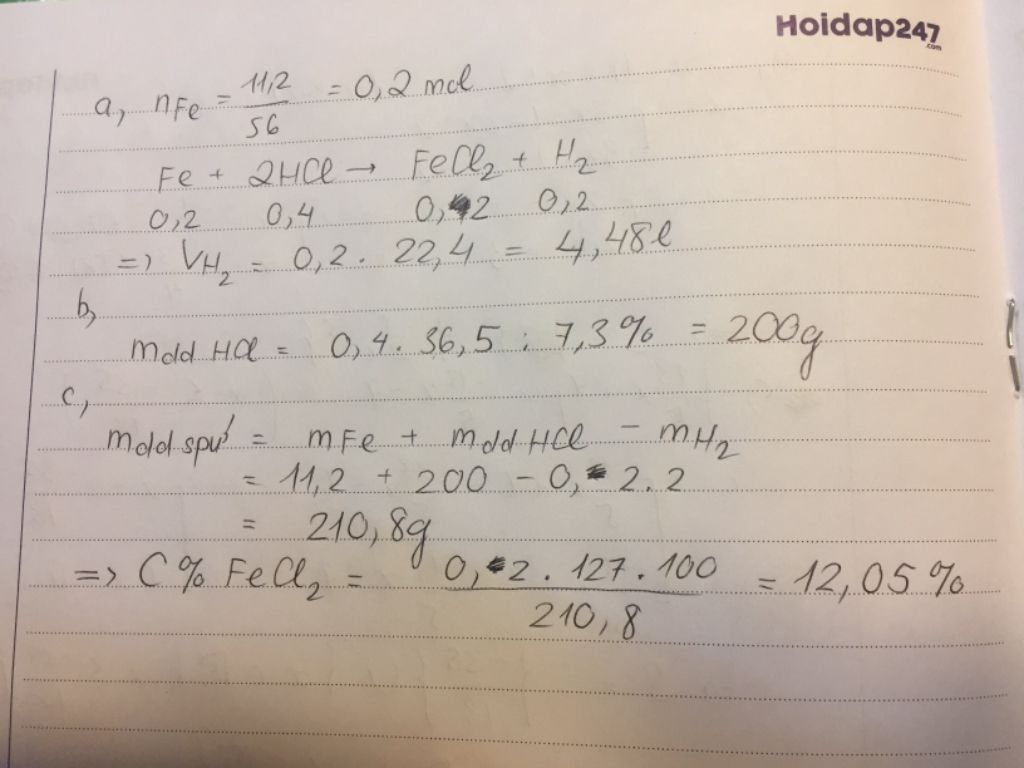 Hoidap247
.com
a, nFe = 11,2 / 56 = 0,2 mol
Fe + 2HCl → FeCl2 + H2
0,2 0,4 0,2 0,2
=> VH2 = 0,2 . 22,4 = 4,48l
b,
mdd HCl = 0,4 . 36,5 : 7,3% = 200g
c,
mdd spư = mFe + mdd HCl - mH2
= 11,2 + 200 - 0,2.2
= 210,8g
=> C% FeCl2 = 0,2 . 127 . 100 / 210,8 = 12,05%